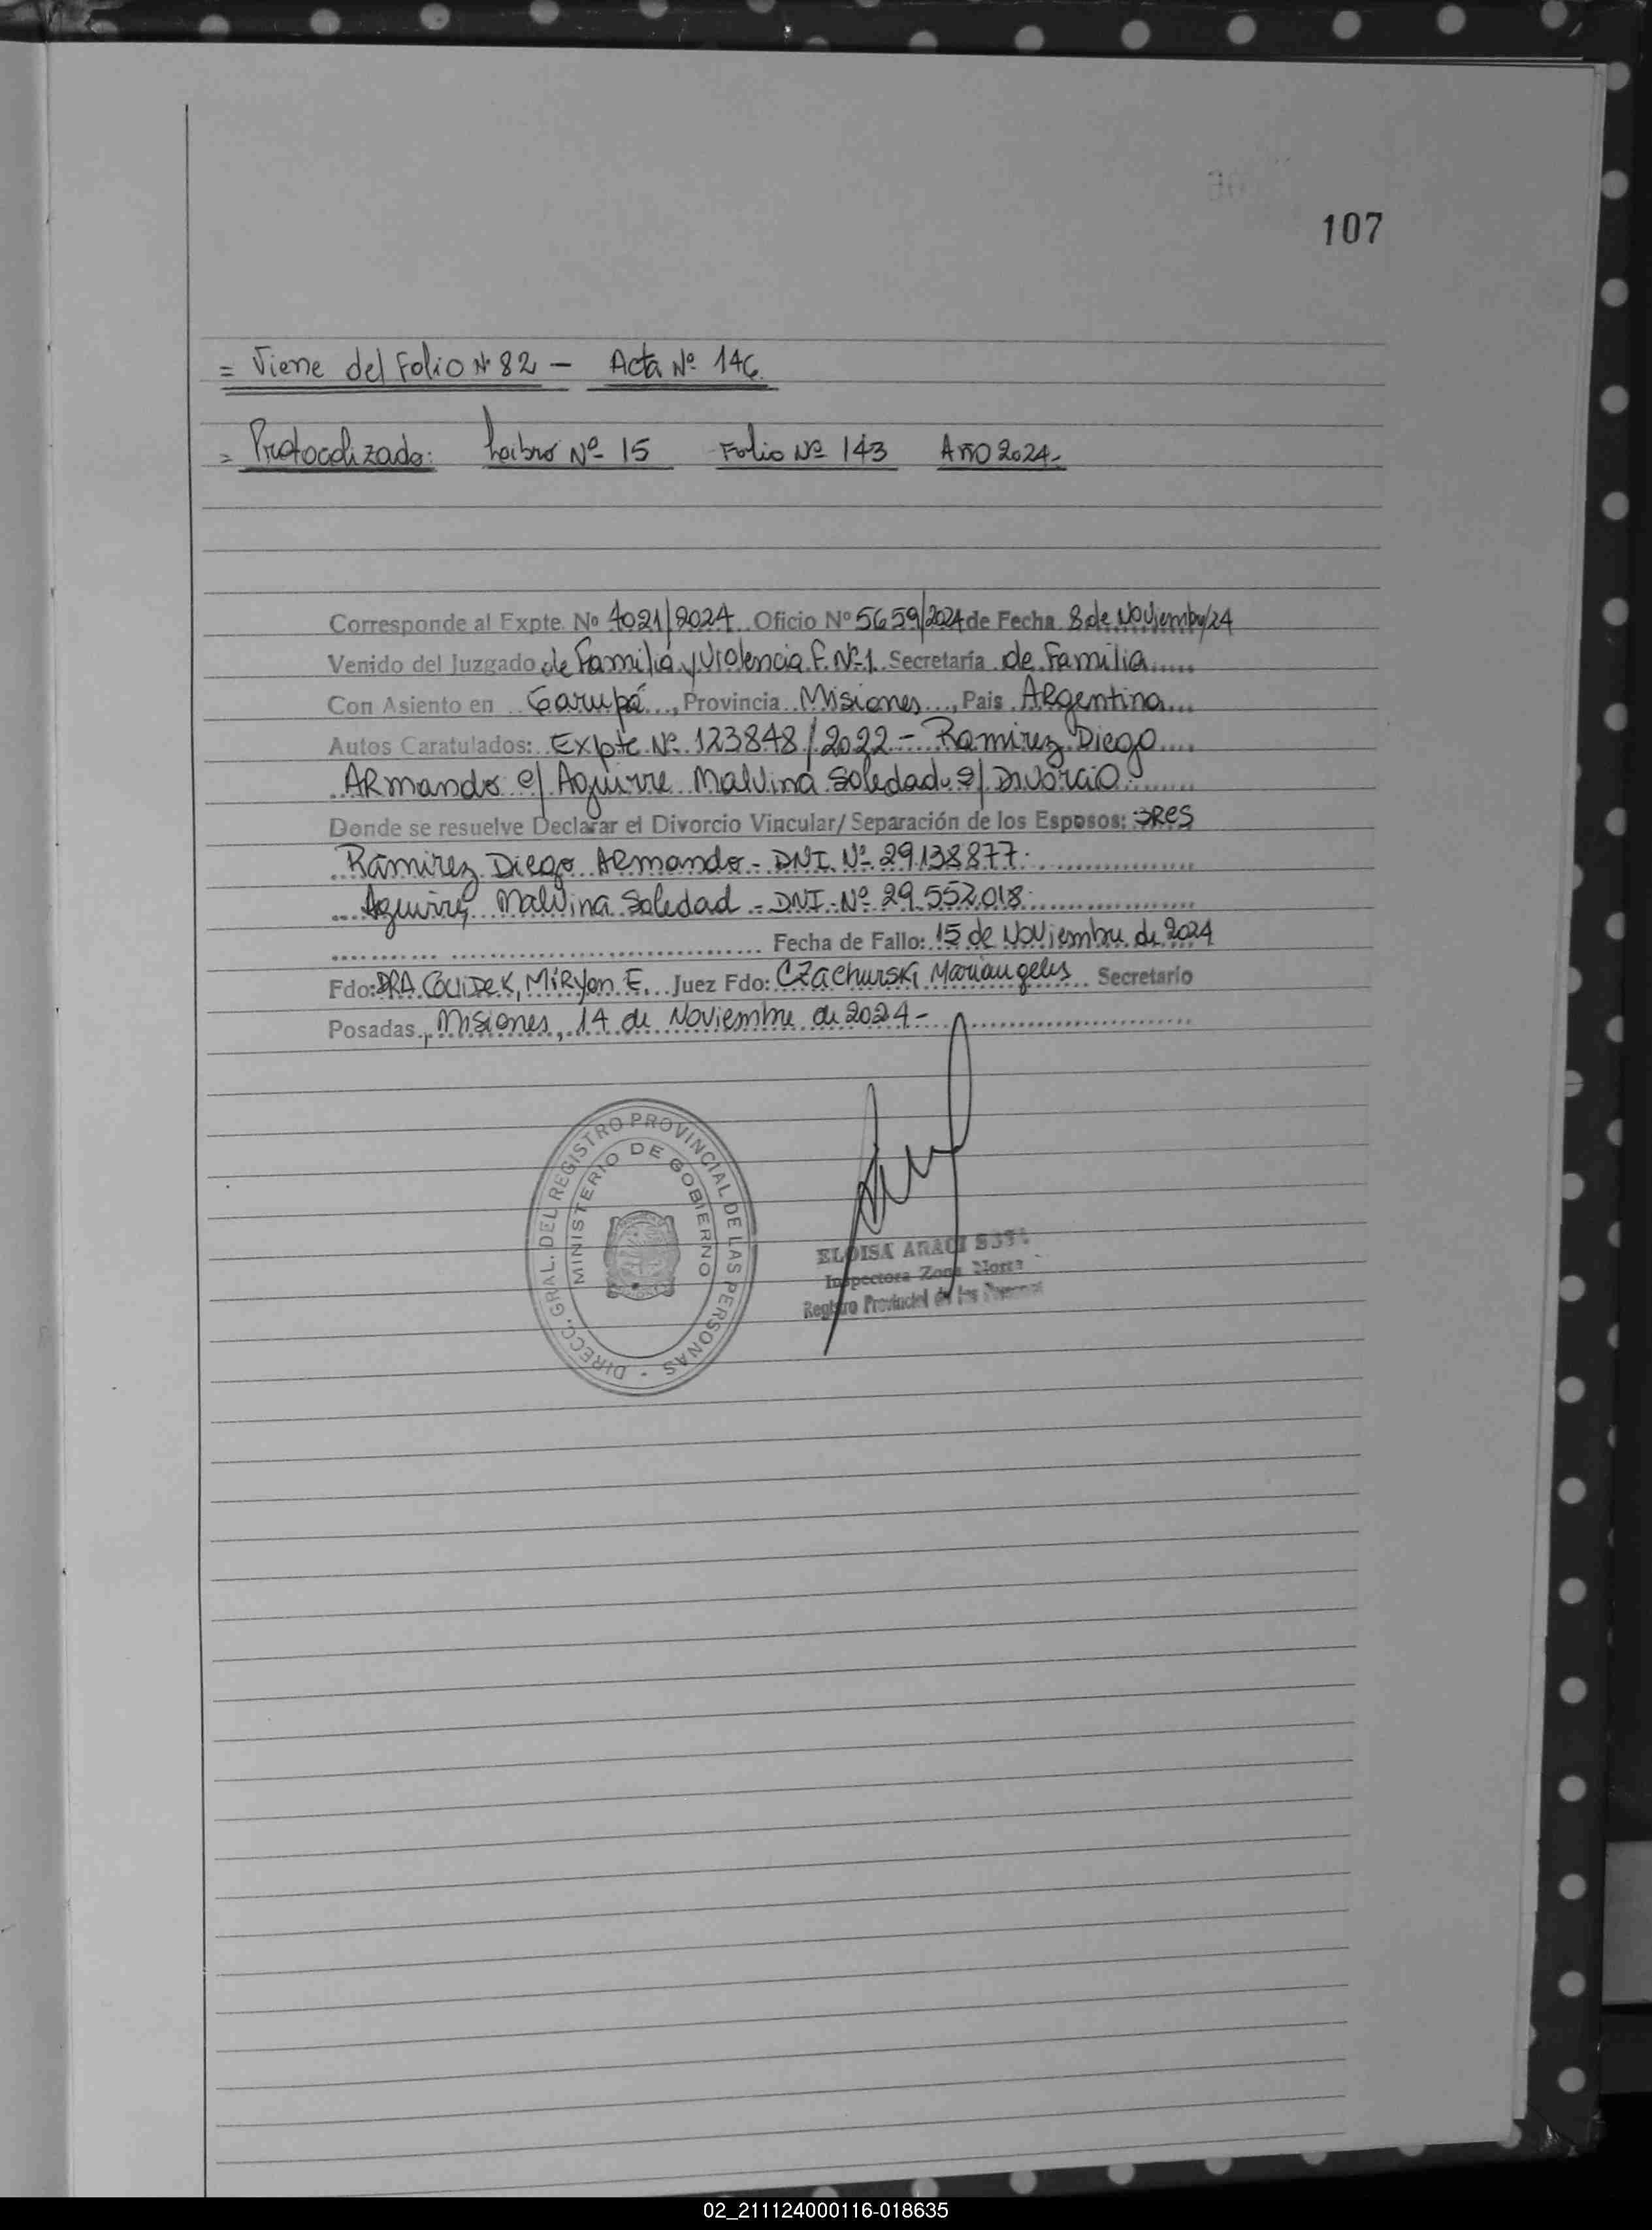 107
= Viene del Folio Nº 82 - Acta Nº 146.
= Protocolizado: Libro Nº 15 Folio Nº 143 Año 2024.-
Corresponde al Expte. Nº 4021/2024 Oficio Nº 5659/2024 de Fecha 8 de Noviembre/24
Venido del Juzgado de Familia y Violencia F. Nº 1 Secretaría de Familia
Con Asiento en Garupá, Provincia Misiones, Pais Argentina
Autos Caratulados: Expte Nº 123848/2022 - Ramirez Diego
Armando c/ Aguirre Malvina Soledad s/ Divorcio.
Donde se resuelve Declarar el Divorcio Vincular/ Separación de los Esposos: SRES
Ramirez Diego Armando - DNI. Nº 29.138.877.
Aguirre, Malvina Soledad - DNI. Nº 29.552.018.
Fecha de Fallo: 15 de Noviembre de 2024
Fdo: DRA. Miryan E. Juez Fdo: Czachurski Mariangeles Secretario
Posadas, Misiones, 14 de Noviembre de 2024 -
DIRECC. GRAL. DEL REGISTRO PROVINCIAL DE LAS PERSONAS -
MINISTERIO DE GOBIERNO
ELOISA ARACI
Inspectora Zona Norte
Registro Provincial de las Personas
02_211124000116-018635